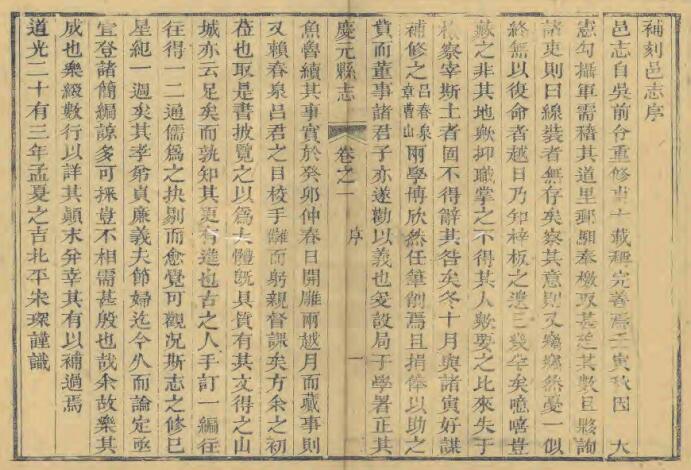 補刻邑志序
邑志自吳前令重修廿十載稱完善焉壬寅秋因　大
憲勾攝軍需稽其道里郵驛奉檄取甚急其數且夥詢
諸吏則曰線裝者無存矣察其意則又竊竊然憂一似
終無以復命者越日乃知梓板之遺亡幾半矣噫嘻豈
藏之非其地歟抑職掌之不得其人歟要之比來失于
檢察宰斯土者固不得辭其咎矣冬十月與諸寅好謀
補修之呂春泉章曹山兩學博欣然任筆削焉且捐俸以助之
貲而董事諸君子亦遂勸以義也爰設局于學署正其
慶元縣志　卷之一　序　一
魚魯續其事實於癸卯仲春日開雕兩越月而蕆事則
又賴春泉呂君之目校手讎而躬親督課矣方余之初
莅也取是書披覽之以為大體旣具質有其文得之山
城亦云足矣而孰知其更有進也古之人手訂一編往
往得一二通儒為之抉剔而愈覺可觀況斯志之修已
星紀一週矣其孝弟貞廉義夫節婦迄今久而論定亟
宜登諸簡編諒多可採豈不相需甚殷也哉余故樂其
成也樂綴數行以詳其顛末分幸其有以補過焉
道光二十有三年孟夏之吉北平宋琛謹識